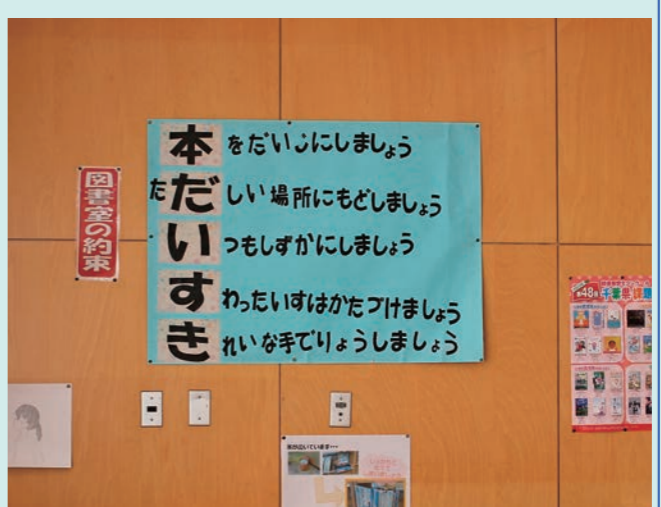 図書室の約束
本をだいじにしましょう
ただしい場所にもどしましょう
いつもしずかにしましょう
すわったいすはかたづけましょう
きれいな手でりようしましょう
第48回
千葉県課題
本が泣いています…